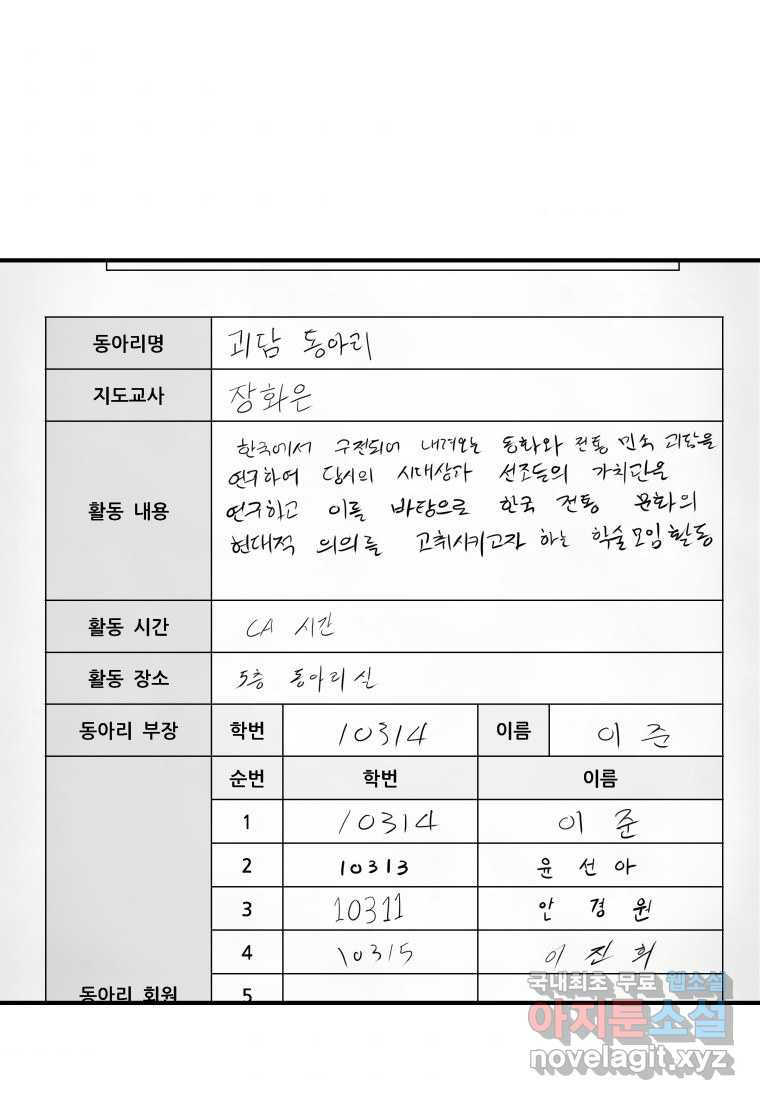 동아리명 괴담 동아리
지도교사 장화은
활동 내용
한국에서 구전되어 내려오는 동화와 전통 민속 괴담을
연구하여 당시의 시대상과 선조들의 가치관을
연구하고 이를 바탕으로 한국 전통 문화의
현대적 의의를 고취시키고자 하는 학술모임 활동
활동 시간 CA 시간
활동 장소 5층 동아리실
동아리 부장 학번 10314 이름 이준
동아리 회원
순번 학번 이름
1 10314 이준
2 10313 윤선아
3 10311 안경원
4 10315 이진희
5
국내최초 무료 웹소설
아지툰소설
novelagit.xyz